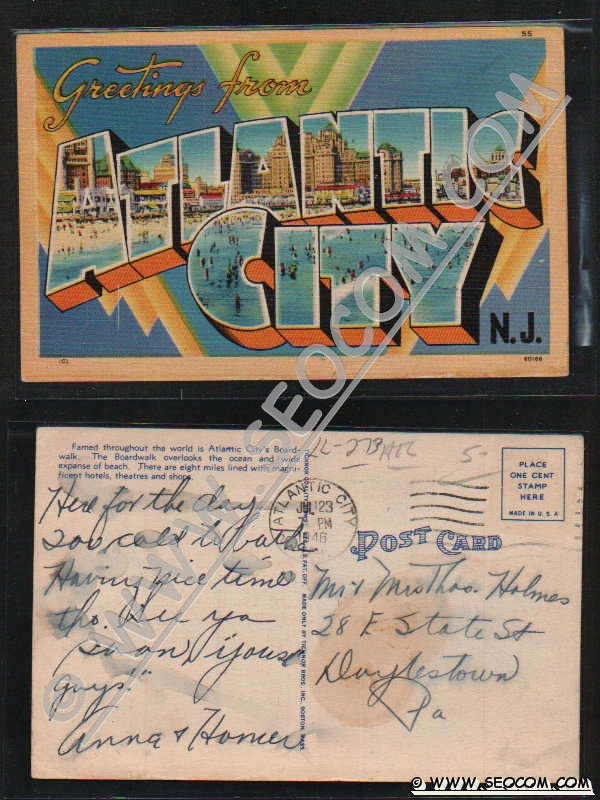 55
Greetings from
ATLANTIC
CITY
N.J.
60166
Famed throughout the world is Atlantic City's Board-
walk. The Boardwalk overlooks the ocean and wide
expanse of beach. There are eight miles lined with magni-
ficent hotels, theatres and shops.
PLACE
ONE CENT
STAMP
HERE
MADE IN U.S.A
ATLANTIC CITY
JUL 23
PM
46
POST CARD
MADE ONLY BY TICHNOR BROS. INC. BOSTON, MASS.
Here for the day
too cold to bathe
Having nice time
tho. See ya
soon "youse
guys!"
Anna & Homer
Mr & Mrs Thos. Holmes
28 E State St
Doylestown
Pa
© WWW.SEOCOM.COM
© WWW.SEOCOM.COM